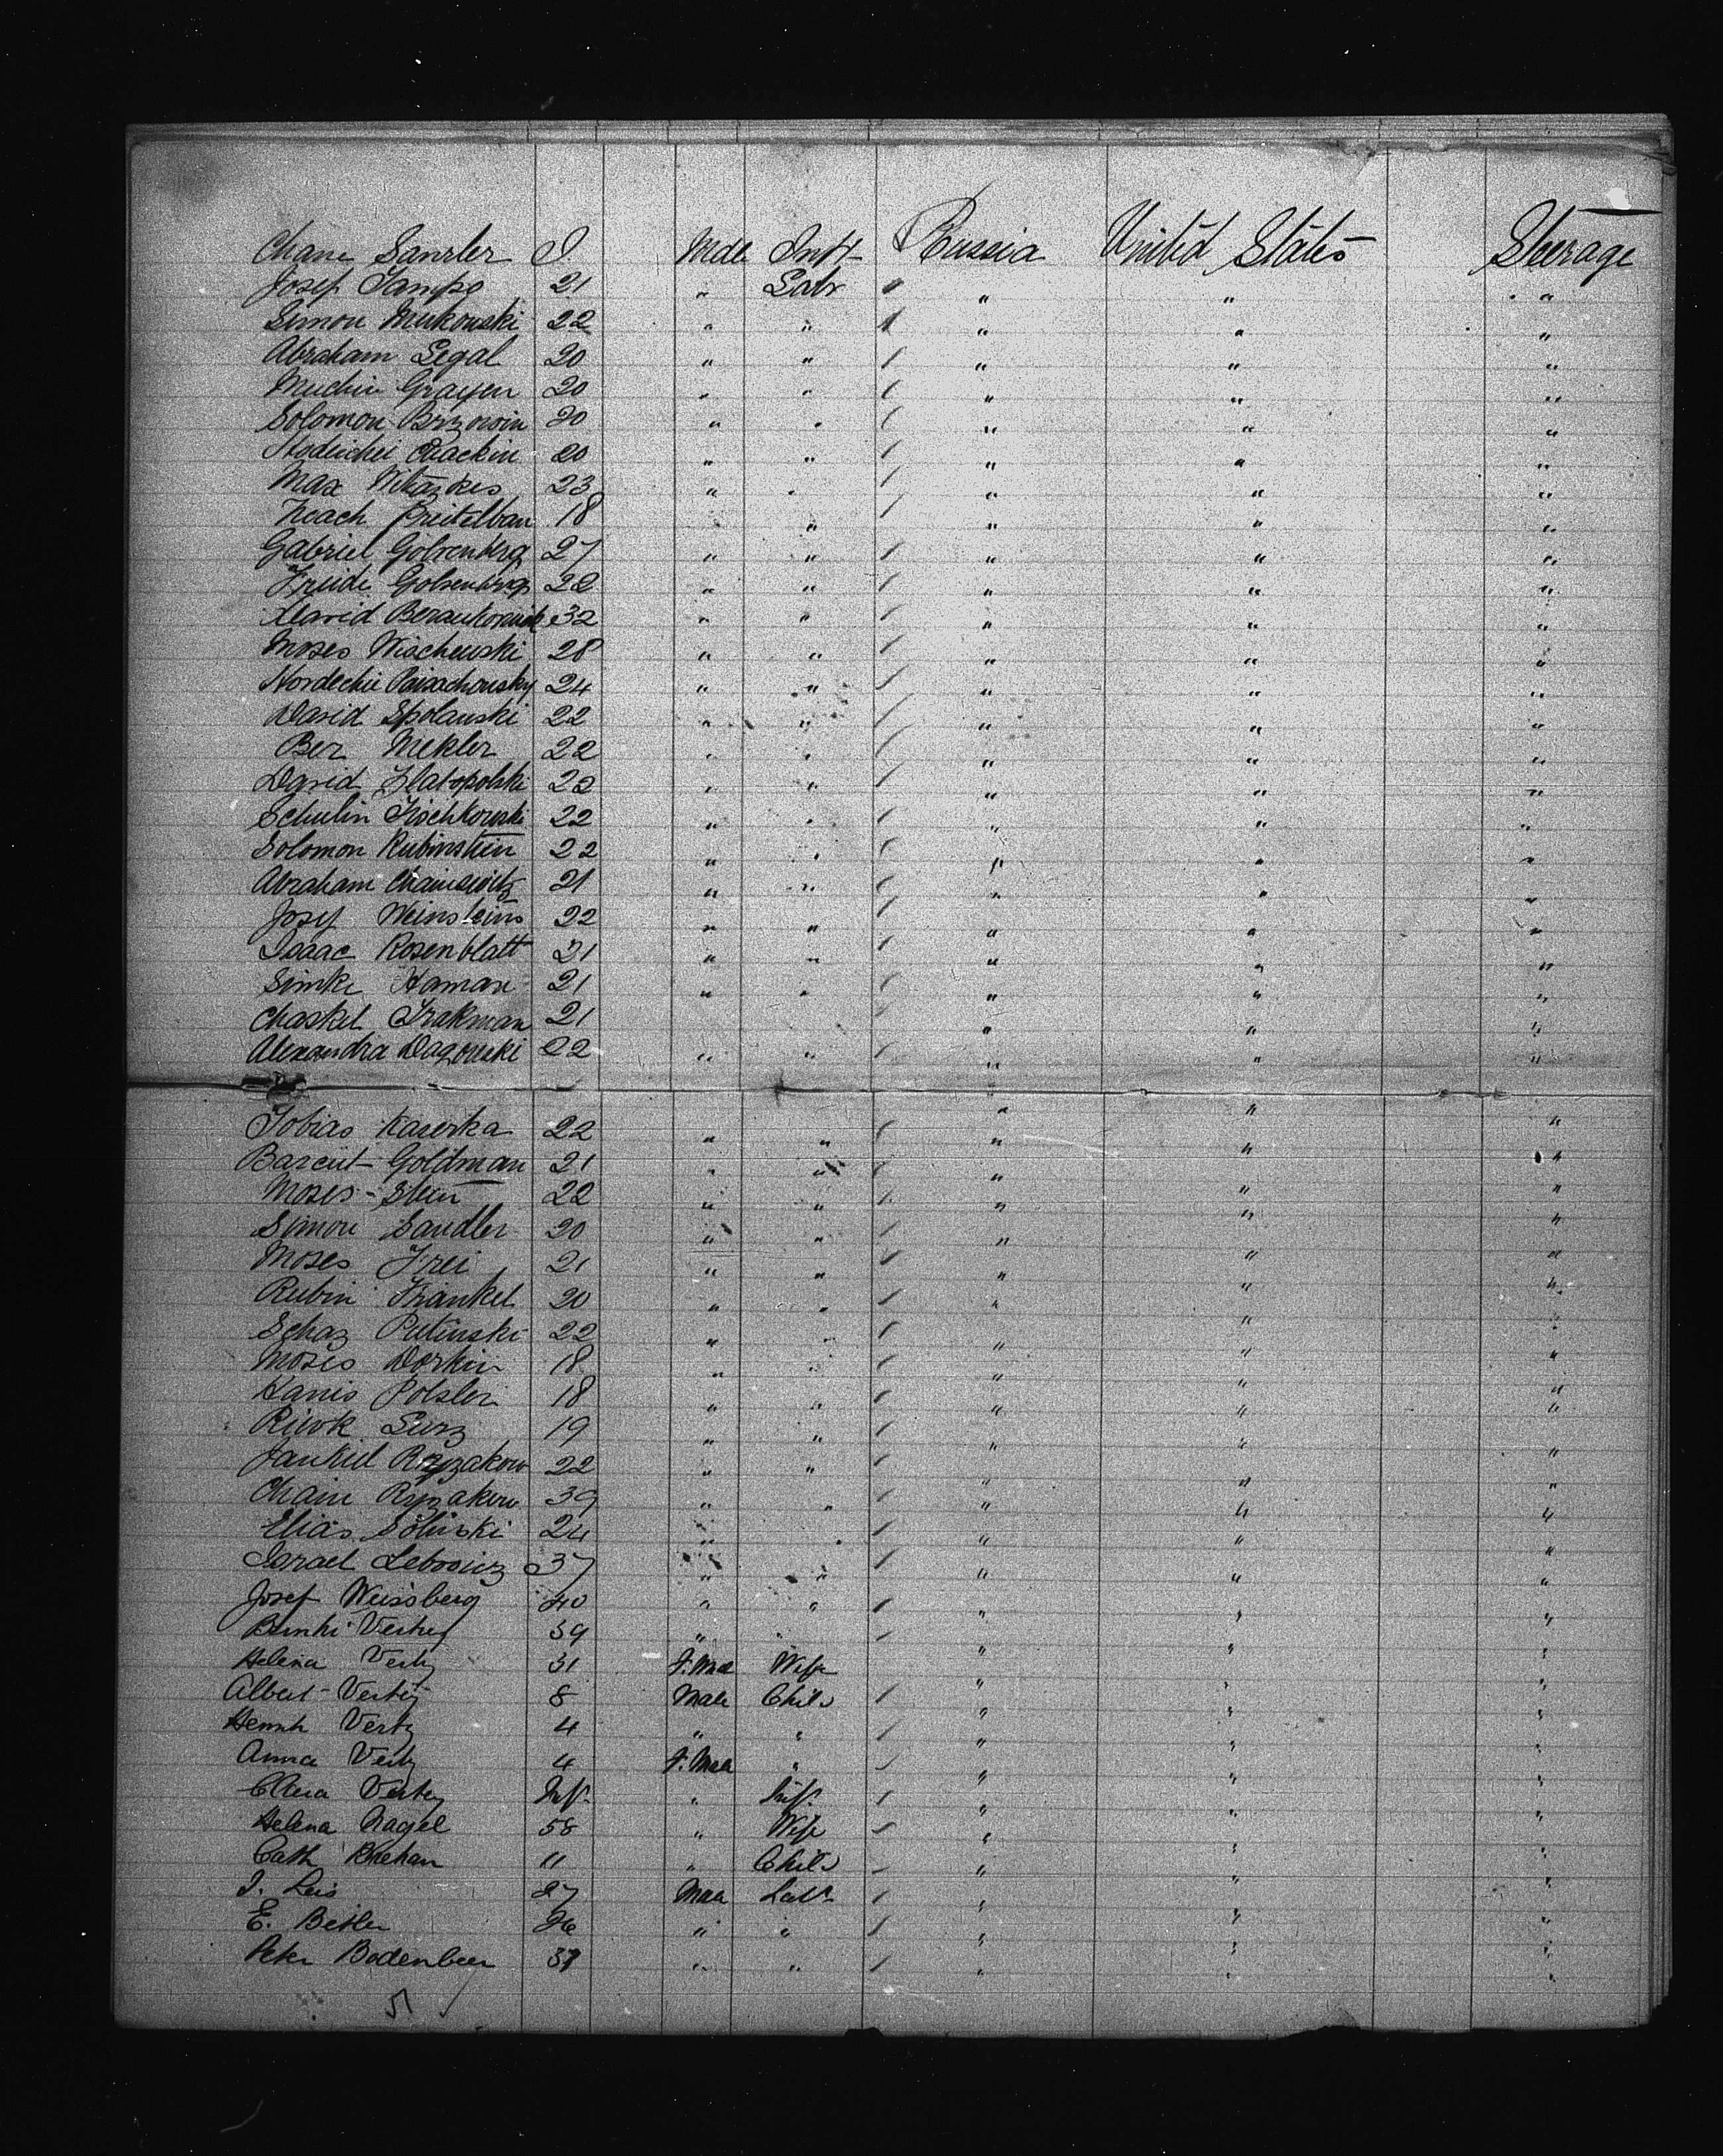 Chane Sanzler I Male Inft Russia United States Steerage
Josef Tampo 21 " Labr " " "
Simon Mukowski 22 " " " " "
Abraham Segal 20 " " " " "
Muchin Grayen 20 " " " " "
Solomon 20 " " " " "
Chackin 20 " " " " "
Max Witaskes 23 " " " " "
Noach Breitelban 18 " " " " "
Gabriel 27 " " " " "
22 " " " " "
David 32 " " " " "
Moses Wischewski 28 " " " " "
24 " " " " "
David Spolanski 22 " " " " "
Ber Mekler 22 " " " " "
David Slatopolski 22 " " " " "
Schulin 22 " " " " "
Solomon Rubinstein 22 " " " " "
Abraham Chaimowitz 21 " " " " "
Josef Weinsteins 22 " " " " "
Isaac Rosenblatt 21 " " " " "
Simke Haman 21 " " " " "
Chaskel Trakman 21 " " "
Alexandra Dagowski 22 " " " " "
Tobias Kaserka 22 " " " " "
Barcut Goldman 21 " " " " "
Moses Stein 22 " " " " "
Simon Sandler 20 " " " " "
Moses Frei 21 " " " " "
Rubin Frankel 20 " " " " "
Schaz Putinski 22 " " " " "
Moses Dorkin 18 " " " " "
Hanis Polsler 18 " " " " "
Riwk Surz 19 " " " " "
Jankiel Ryzakow 22 " " " " "
Chaim Ryzakow 39 " " " " "
Elias Solinski 24 " " " " "
Israel Lebowiz 37 " " " " "
Josef Weissberg 40 " " " " "
39 " " " " "
Helena Vertz 31 F. Mal Wife " " "
Albert Vertz 8 Male Child " " "
Vertz 4 " " " " "
Anna Vertz 4 F. Male " " " "
Clara Vertz Inf. " Inf. " " "
Helena Nagel 58 " Wife " " "
Cath 11 " Child " " "
I. Leis 27 Male Labr " " "
E. Betler 26 " " " " "
Peter Bodenbeer 37 " " " " "
51